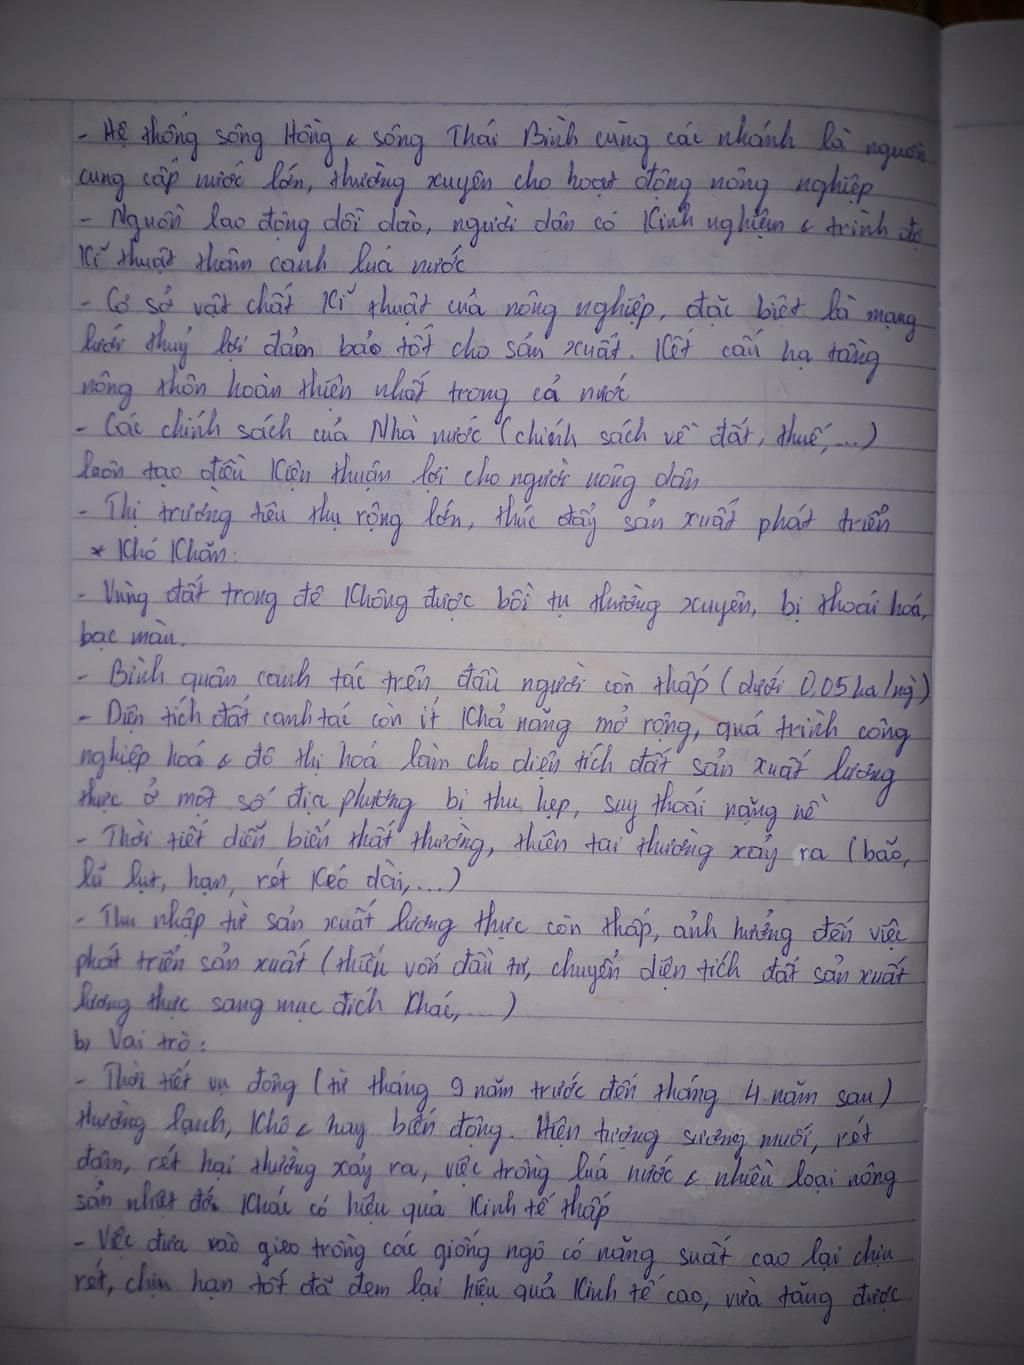 - Hệ thống sông Hồng & sông Thái Bình cùng các nhánh là nguồn
cung cấp nước lớn, thường xuyên cho hoạt động nông nghiệp
- Nguồn lao động dồi dào, người dân có kinh nghiệm & trình độ
kĩ thuật thâm canh lúa nước
- Cơ sở vật chất kĩ thuật của nông nghiệp, đặc biệt là mạng
lưới thuỷ lợi đảm bảo tốt cho sản xuất. Kết cấu hạ tầng
nông thôn hoàn thiện nhất trong cả nước
- Các chính sách của Nhà nước (chính sách về đất, thuế,...)
luôn tạo điều kiện thuận lợi cho người nông dân
- Thị trường tiêu thụ rộng lớn, thúc đẩy sản xuất phát triển
* Khó khăn:
- Vùng đất trong đê không được bồi tụ thường xuyên, bị thoái hoá,
bạc màu.
- Bình quân canh tác trên đầu người còn thấp (dưới 0,05ha/ng)
- Diện tích đất canh tác còn ít khả năng mở rộng, quá trình công
nghiệp hoá & đô thị hoá làm cho diện tích đất sản xuất lương
thực ở một số địa phương bị thu hẹp, suy thoái nặng nề
- Thời tiết diễn biến thất thường, thiên tai thường xảy ra (bão,
lũ lụt, hạn, rét kéo dài,...)
- Thu nhập từ sản xuất lương thực còn thấp, ảnh hưởng đến việc
phát triển sản xuất (thiếu vốn đầu tư, chuyển diện tích đất sản xuất
lương thực sang mục đích khác,...)
b, Vai trò:
- Thời tiết vụ đông (từ tháng 9 năm trước đến tháng 4 năm sau)
thường lạnh, khô & hay biến động. Hiện tượng sương muối, rét
đậm, rét hại thường xảy ra, việc trồng lúa nước & nhiều loại nông
sản nhiệt đới khác có hiệu quả kinh tế thấp
- Việc đưa vào gieo trồng các giống ngô có năng suất cao lại chịu
rét, chịu hạn tốt đã đem lại hiệu quả kinh tế cao, vừa tăng được